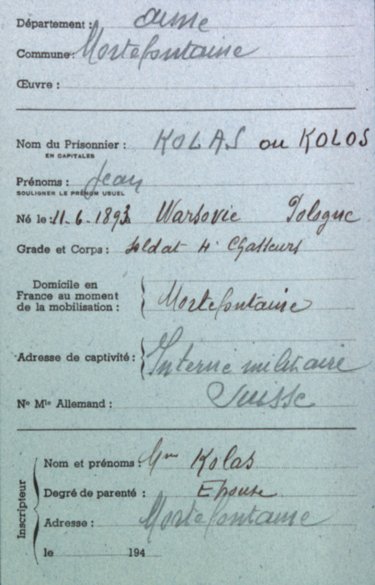 Département : Aisne
Commune : Mortefontaine
Œuvre :
Nom du Prisonnier : KOLAS ou KOLOS
EN CAPITALES
Prénoms : Jean
SOULIGNER LE PRÉNOM USUEL
Né le : 11-6-1893 Warsovie Pologne
Grade et Corps : Soldat 4e Chasseurs
Domicile en
France au moment
de la mobilisation : Mortefontaine
Adresse de captivité : Interné militaire
Nº Mle Allemand : Suisse
Inscripteur
Nom et prénoms : Mme Kolas
Degré de parenté : Epouse
Adresse : Mortefontaine
le 194